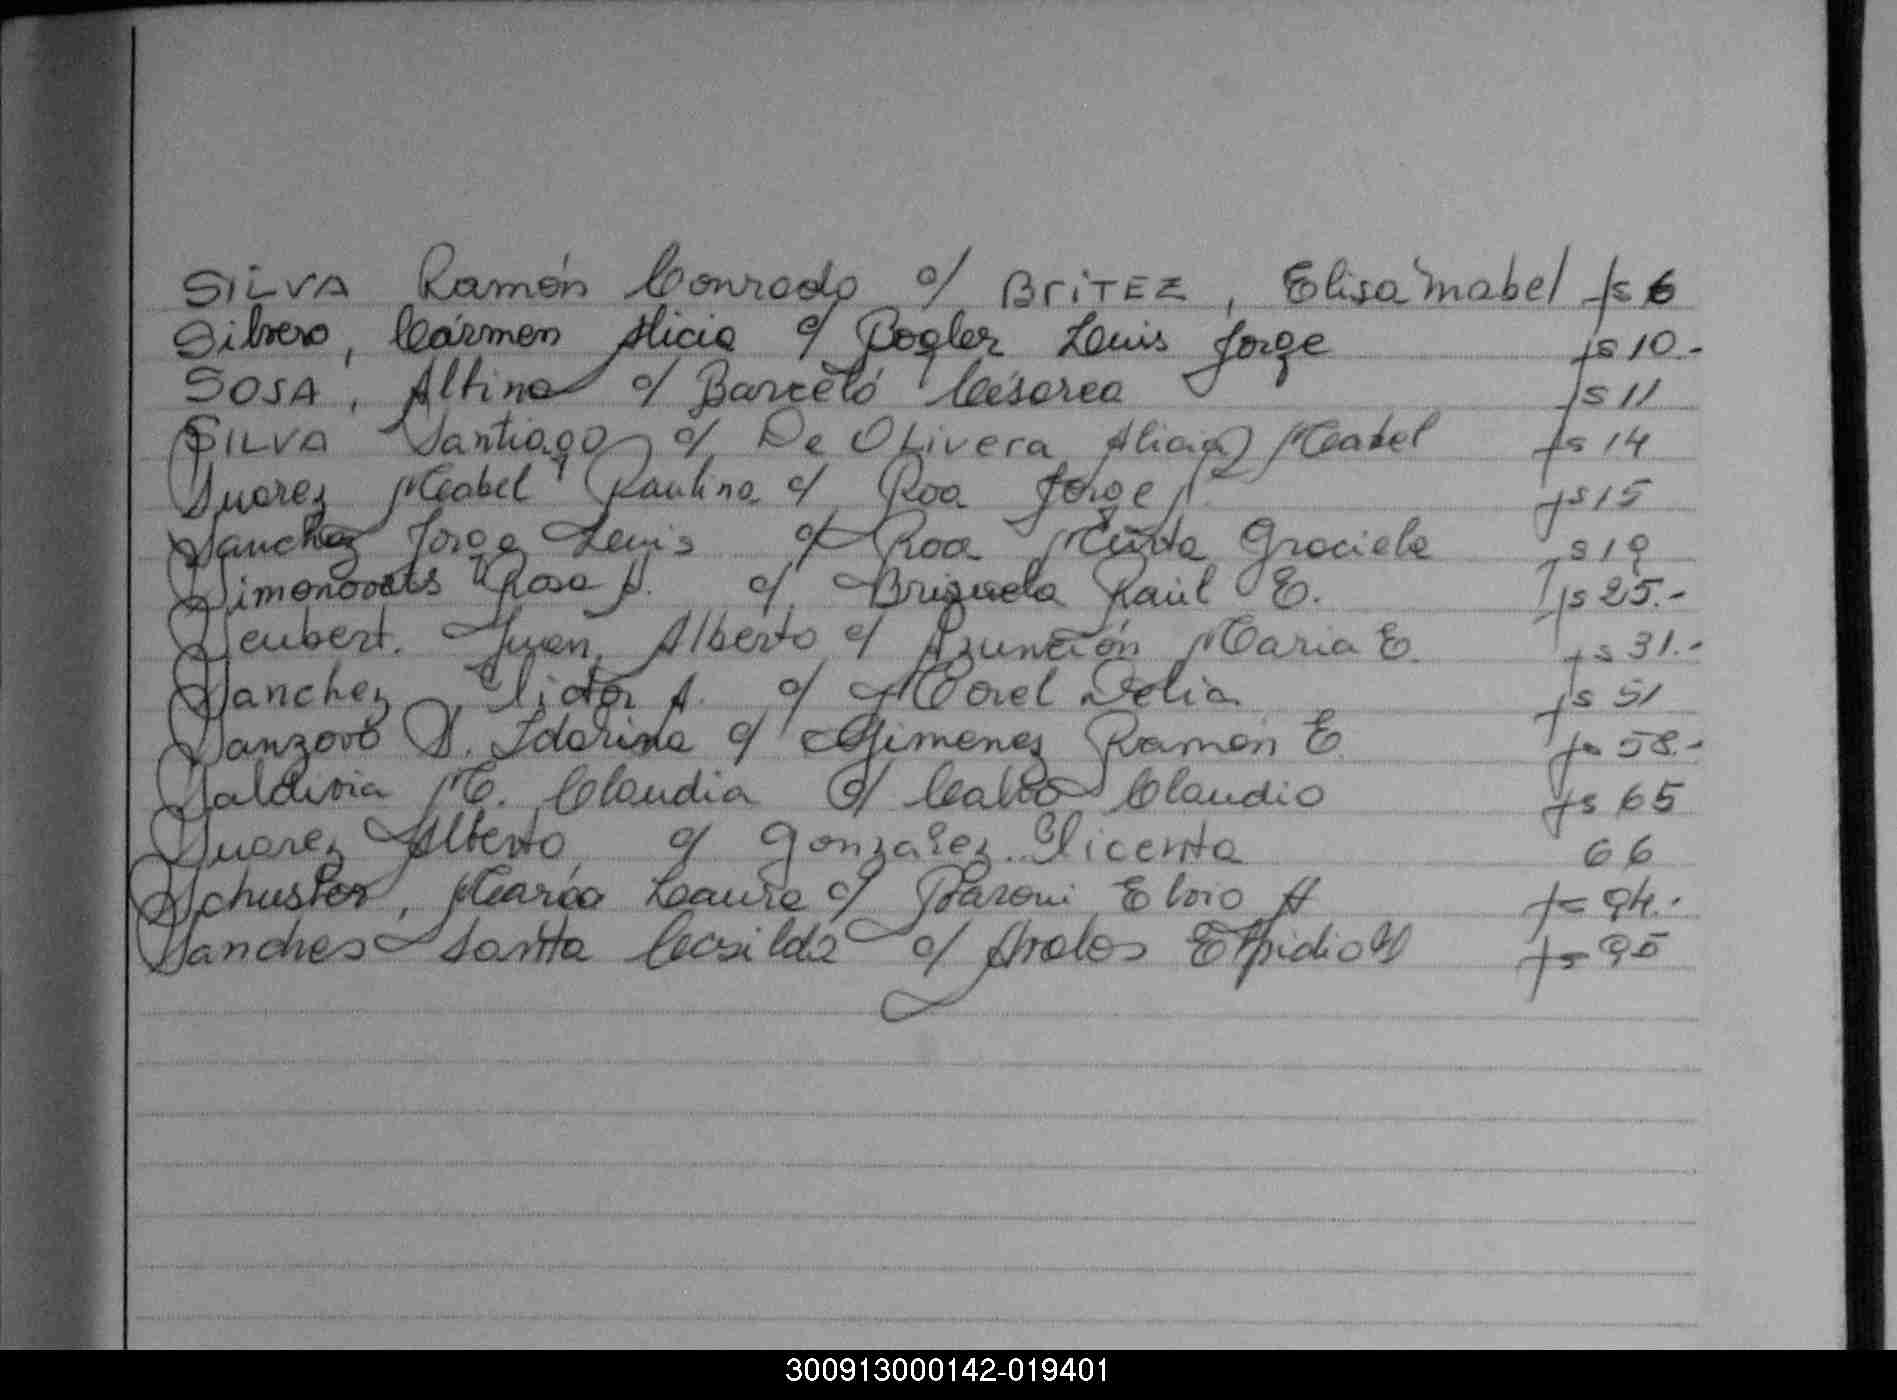 SILVA Ramón Conrado c/ BRITEZ, Elisa Mabel fs 6
Silvero, Cármen Alicia c/ Bogler Luis Jorge fs 10.-
SOSA, Albina c/ Barceló Césarea fs 11
SILVA Santiago c/ De OLivera Alicia Mabel fs 14
Suarez Mabel Paulina c/ Roa Jorge fs 15
Sanchez Jorge Luis c/ Roa Mirta Graciela fs 19
Rosa A. c/ Brizuela Raúl E. fs 25.-
Seubert. Juan Alberto c/ Asunción Maria E. fs 31.-
Sanchez Victor A. c/ Morel Delia fs 51
c/ Gimenez Ramón E. fs 58.-
Saldivia M. Claudia c/ Calvo Claudio fs 65
Suarez Alberto c/ Gonzalez Vicenta 66
Schuster, María Laura c/ Baroni Elvio A fs 94.-
Sanches Santa Casilda c/ Avalos Elpidio fs 95
300913000142-019401